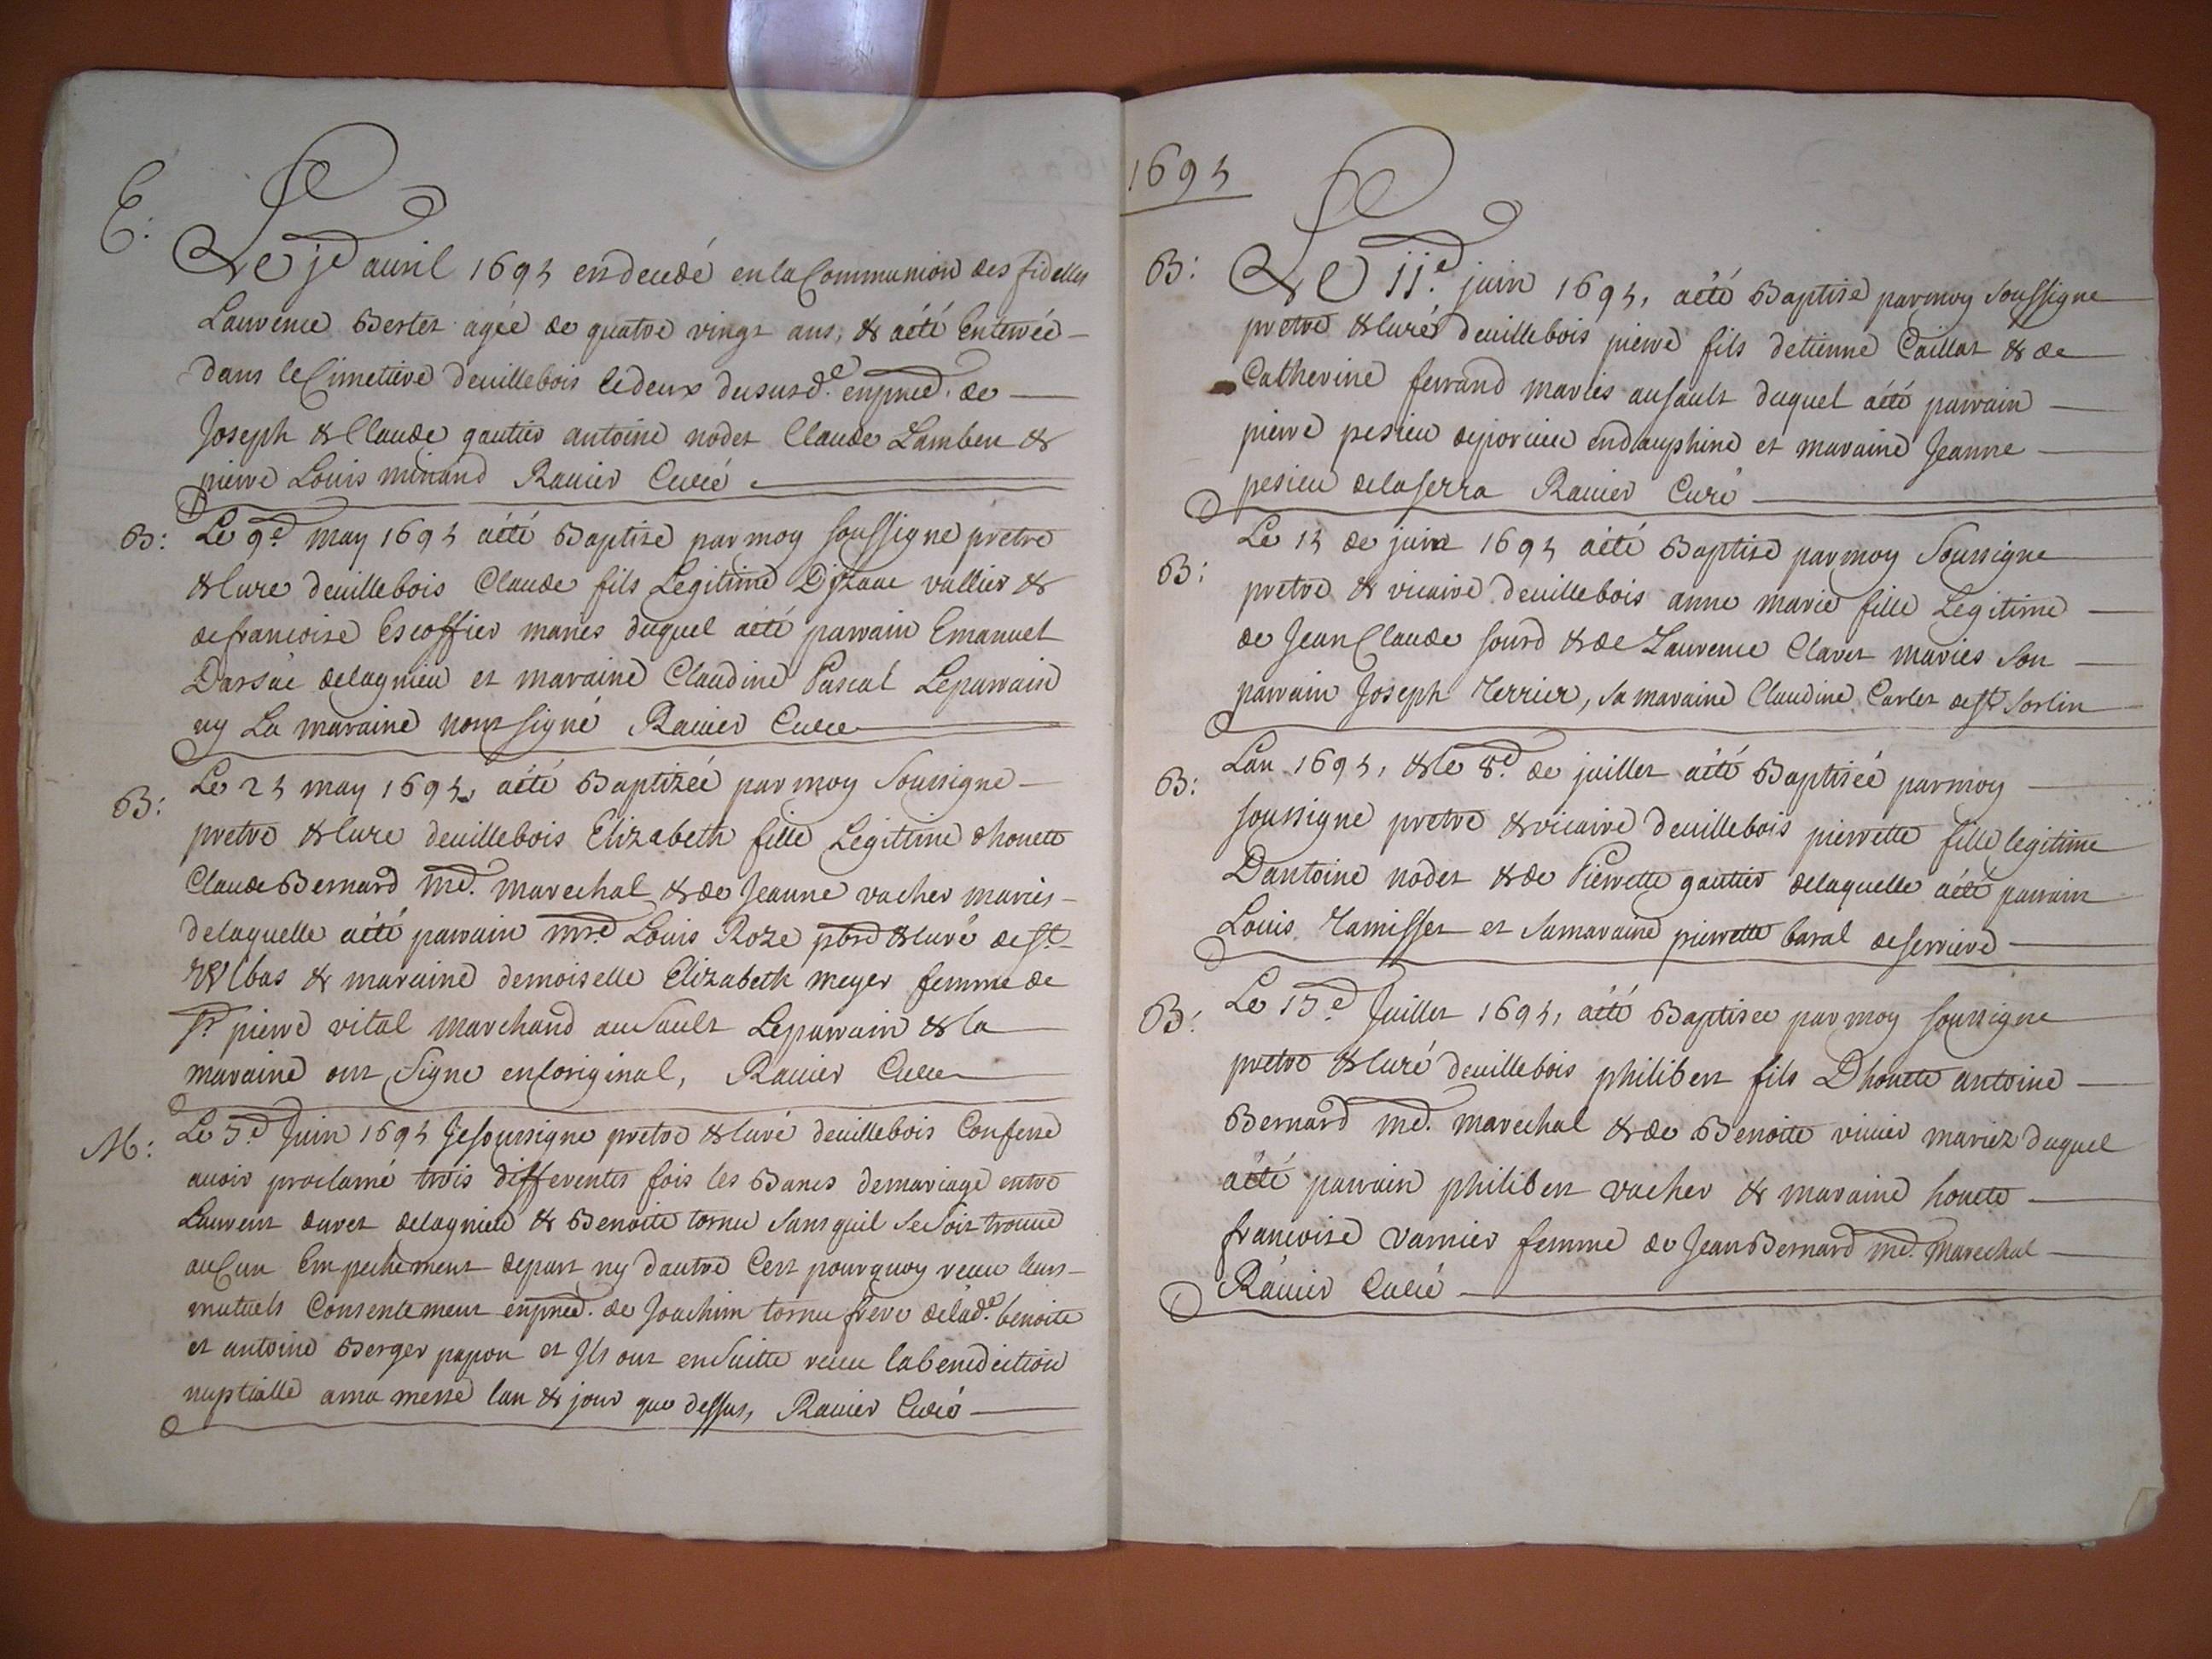 E:
Le je avril 1695 en decedé en la Communion des fidelles
Laurence Berlet agée de quatre vingt ans, & aété Enterrée
dans le Cimettiere deuillebois le deux dususd.e enpnce. de
Joseph & Claude gautier antoine nodet Claude Lambert &
pierre Louis minand Rauier Curé
B: Le 9e may 1695 aété Baptisé parmoy soussigné pretre
& Curé deuillebois Claude fils Legitime Djzaac vallier &
defrancoise Escoffier maries duquel aété parrain Emanuel
Darsac delagnieu et maraine Claudine Pascal Leparrain
ny La maraine nont signé Rauier Curé
B: Le 25 may 1695, aété Baptizéé par moy Soussigne
pretre & Cure deuillebois Elizabeth fille Legittime dhonete
Claude Bernard me. marechal & de Jeanne vacher maries
delaquelle aété parrain mre Louis Roze pbre & Curé de St
Wlbas & maraine demoiselle Elizabeth meyer femme de
sr pierre vital marchand au Sault Leparrain & la
maraine ont Signe enloriginal, Rauier Curé
M: Le 7e Juin 1695 Jesoussigne pretre & Curé deuillebois Confesse
auoir proclamé trois differentes fois les Bancs demariage entre
Laurent davet delagnieu & Benoite tornu Sans quil se Soit trouué
auCun Empechement depart ny dautre Cest pourquoy receu leurs
mutuels Consentement enpnce. de Joachim tornu frere delad.e benoite
et antoine Berger papon et Jls ont ensuitte receu labenediction
nuptialle ama messe lan & jour que dessus, Rauier Curé
1695
B: Le 11e. juin 1695, aété Baptisé parmoy soussigne
pretre & Curé deuillebois pierre fils detienne Caillat & de
Catherine ferrand mariés ausault duquel aété parrain
pierre pesieu deporcieu endauphiné et maraine Jeanne
pesieu delaserra Rauier Curé
B: Le 15 de juin 1695 aété Baptisé parmoy Soussigne
pretre & vicaire deuillebois anne marie fille Legitime
de Jean Claude sourd & de Laurence Claret maries Son
parrain Joseph Terrier, sa maraine Claudine Carlet de St Sorlin
B: Lan 1695, & le 8e. de juillet aété Baptiséé parmoy
soussigne pretre & vicaire deuillebois pierrette fille legitime
Dantoine nodet & de Pierrette gautier delaquelle aété parrain
Louis Tamisset et Samaraine pierrette baral deserriere
B: Le 17e Juillet 1695, aété Baptisee par moy soussigne
pretre & Curé deuillebois philibert fils Dhonete antoine
Bernard me. marechal & de Benoite viuier mariez duquel
aété parrain philibert vacher & maraine honete
francoise varnier femme de Jean Bernard me. marechal
Rauier Curé